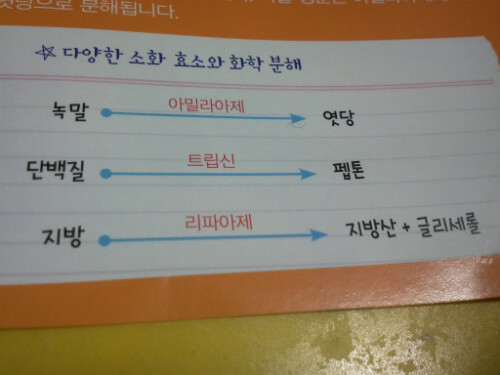 엿당으로 분해됩니다.
☆ 다양한 소화 효소와 화학 분해
녹말 아밀라아제 엿당
단백질 트립신 펩톤
지방 리파아제 지방산 + 글리세롤